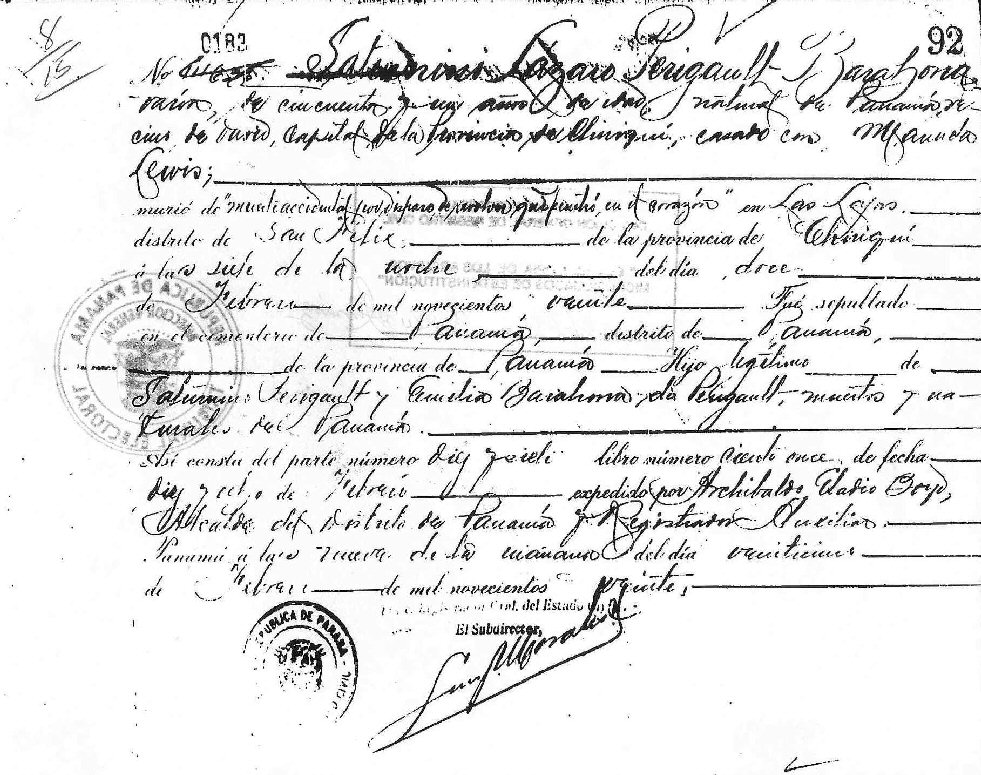 8/15
0183
92
No Saturnino Lázaro Perigault Barahona
varón, de cincuenta y un años de edad, natural de Panamá, ve-
cino de David, Capital de la Provincia de Chiriquí, casado con Manuela
Lewis;
murió de "muerte accidental por disparo de revolver que penetró en el corazón" en Las Lajas
distrito de San Félix, de la provincia de Chiriquí
á las siete de la noche del día doce
de Febrero de mil novecientos veinte Fué sepultado
en el cementerio de Panamá, distrito de Panamá,
de la provincia de Panamá Hijo legítimo de
Saturnino Perigault y Emilia Barahona de Perigault, muertos y na-
turales de Panamá.
Así consta del parte número diez y siete libro número ciento once de fecha
diez y ocho de Febrero expedido por Archibaldo Eladio Boyd,
Alcalde del Distrito de Panamá y Registrador Auxiliar.
Panamá á las nueve de la mañana del día veinticinco
de Febrero de mil novecientos veinte,
Gral. del Estado
El Subdirector,
REPUBLICA DE PANAMA
REPUBLICA DE PANAMA
TRIBUNAL ELECTORAL